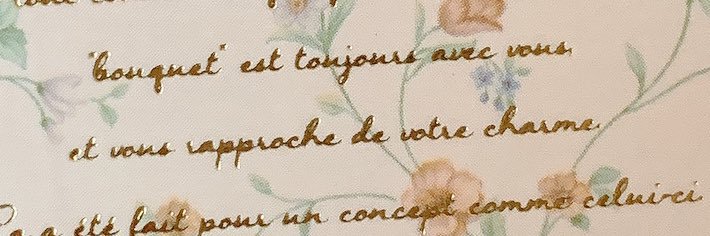 "bouquet" est toujours avec vous,
et vous rapproche de votre charme.
a été fait pour un concept comme celui-ci